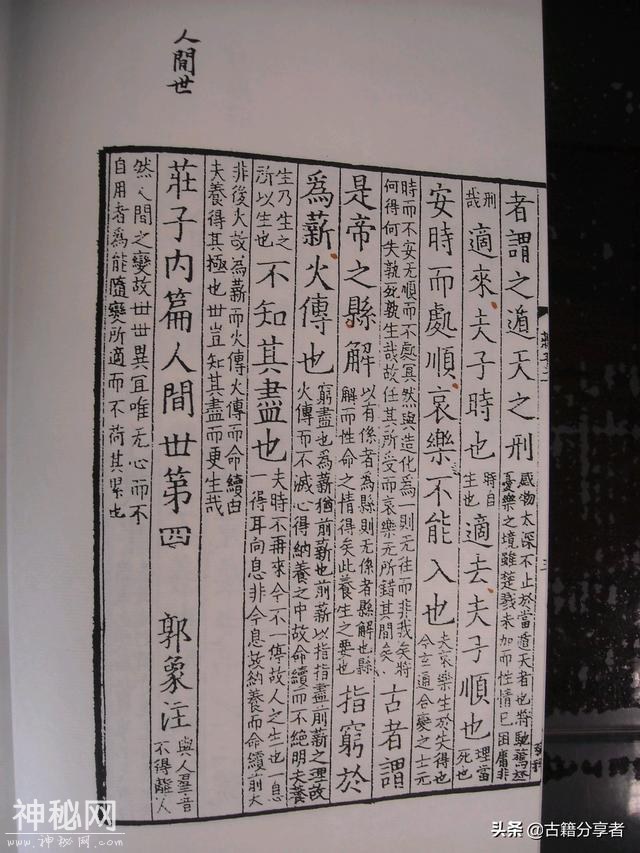 人間世
者謂之遁天之刑
感物太深不止於當遁天者也將馳騖於
憂樂之境雖楚戮未加而性情已困庸非
刑
哉
適來夫子時也
時自
生也
適去夫子順也
理當
死也
安時而處順哀樂不能入也
夫哀樂生於失得也
今玄通合變之士无
時而不安无順而不處冥然與造化為一則无往而非我矣將
何得何失孰死孰生哉故任其所受而哀樂无所錯其間矣
古者謂
是帝之縣解
以有係者為縣則无係者縣解也縣
解而性命之情得矣此養生之要也
指窮於
為薪火傳也
窮盡也為薪猶前薪也前薪以指指盡前薪之理故
火傳而不滅心得納養之中故命續而不絕明夫養
生乃生之
所以生也
不知其盡也
夫時不再來今不一停故人之生也一息
一得耳向息非今息故納養而命續前火
非後火故為薪而火傳火傳而命續由
夫養得其極也世豈知其盡而更生哉
莊子內篇人間世第四 郭象注
與人羣者
不得離人
然人間之變故世世異宜唯无心而不
自用者為能隨變所適而不荷其累也
神秘网
www.shenmiwang.com
头条 @古籍分享者